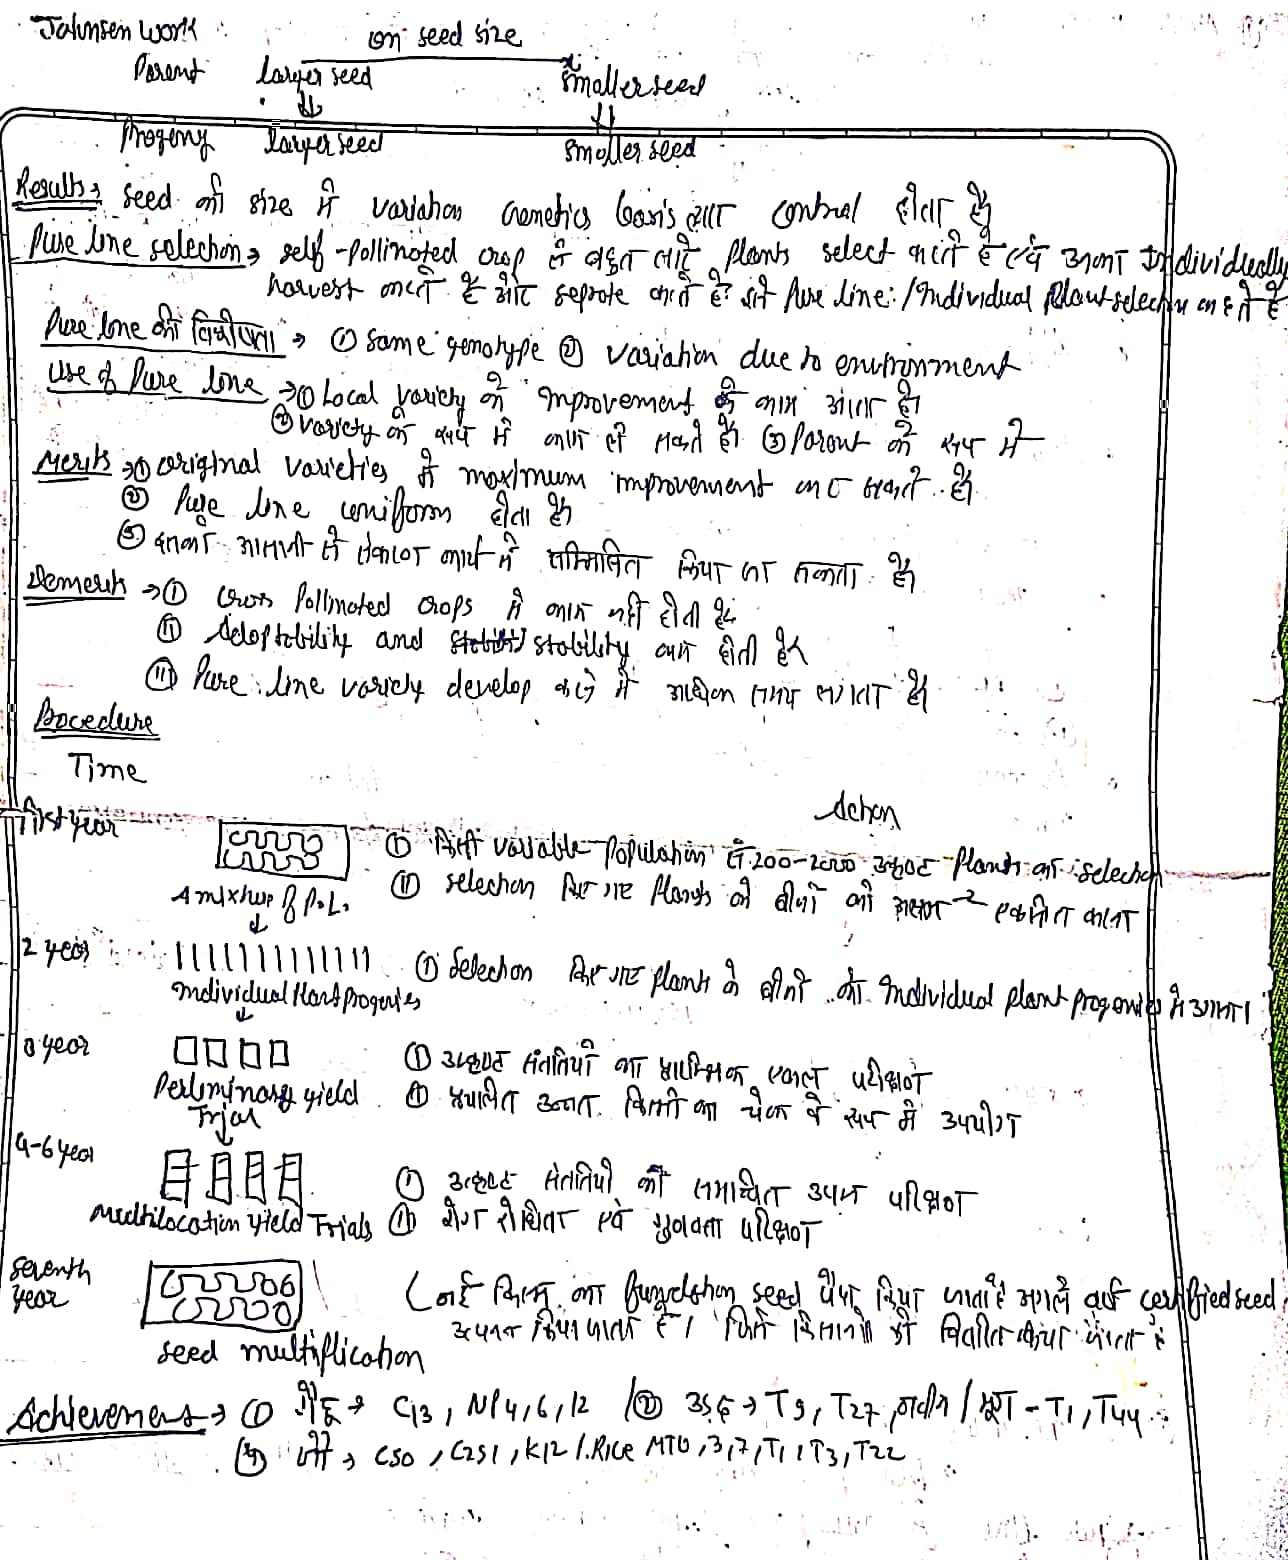 Johnsen work on seed size
Parent larger seed smaller seed
Progeny larger seed smaller seed
Results → seed की size में variation Genetics basis द्वारा control होता है
Pure line selection → self-pollinated crop में बहुत सारे plants select करते हैं एवं उनका Individually
harvest करते हैं और seprate करते हैं। इसे Pure line / Individual Plant selection कहते हैं
Pure line की विशेषता → ① same genotype ② variation due to environment
Use of Pure line → ① Local variety के improvement के काम आता है।
② variety के रूप में काम ले सकते है। ③ Parent के रूप में
Merits → ① original varieties में maximum improvement कर सकते है।
② Pure line uniform होता है
③ इनको आसानी से संकरण कार्य में सम्मिलित किया जा सकता है।
Demerits → ① cross Pollinated crops में काम नहीं होती है
⑪ Adoptability and stability कम होती है
⑪⑪ Pure line variety develop करने में अधिक समय लगता है
Procedure
Time
Action
First year ① किसी variable Population से 200-2000 उत्कृष्ट Plants का selection
A mixture of P.L. ⑪ selection किए गए Plants के बीजों को अलग-2 एकत्रित करना
2 year ① Selection किए गए plants के बीजों को Individual plant progenies में उगाना।
Individual Plant Progenies
3 year ① उत्कृष्ट संततियों का प्रारम्भिक उपज परिक्षण
Perliminary yield ⑪ प्रचलित उन्नत किस्मों का चेक के रूप में उपयोग
Trial
4-6 year ① उत्कृष्ट संततियों की समन्वित उपज परिक्षण
Multilocation yield Trials ⑪ रोग रोधिता एवं गुणवत्ता परिक्षण
Seventh (नई किस्म का fundetshon seed पैदा किया जाता है अगले वर्ष certified seed
year उत्पन्न किया जाता है। जिसे किसानों को वितरित किया जाता है
seed multiplication
Achievement → ① गेंहू → C13, NP4, 6, 12 / ② उड़द → T9, T27, नवीन / मूंग - T1, T44
→ C50, C251, K12 /. Rice MTU, 3, 7, T1, T3, T22